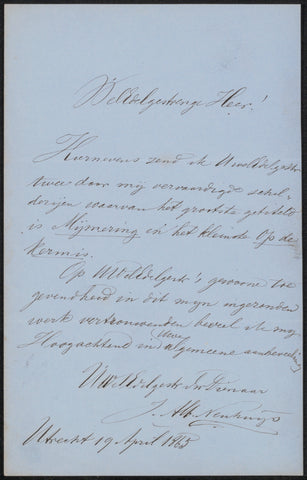 WelEdelgestrenge Heer!
Hiernevens zend ik UwelEdelgestr
twee door mij vervaardigde schil-
derijen waarvan het grootste getiteld
is Mijmering en het kleinste Op de
Kermis.
Op UWelEdelgestr's gewoone toe
gevendheid in dit mijn ingezonden
werk vertrouwenden beveel ik mij
Hoogachtend in Uwe algemeene aanbeveling
UwelEdelgestr Dw Dienaar
J. Alb. Neuhuijs
Utrecht 19 April 1865